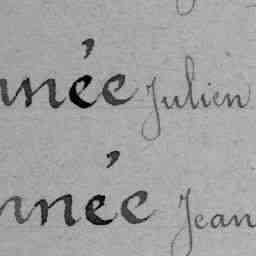 nnée Julien
nnée Jean